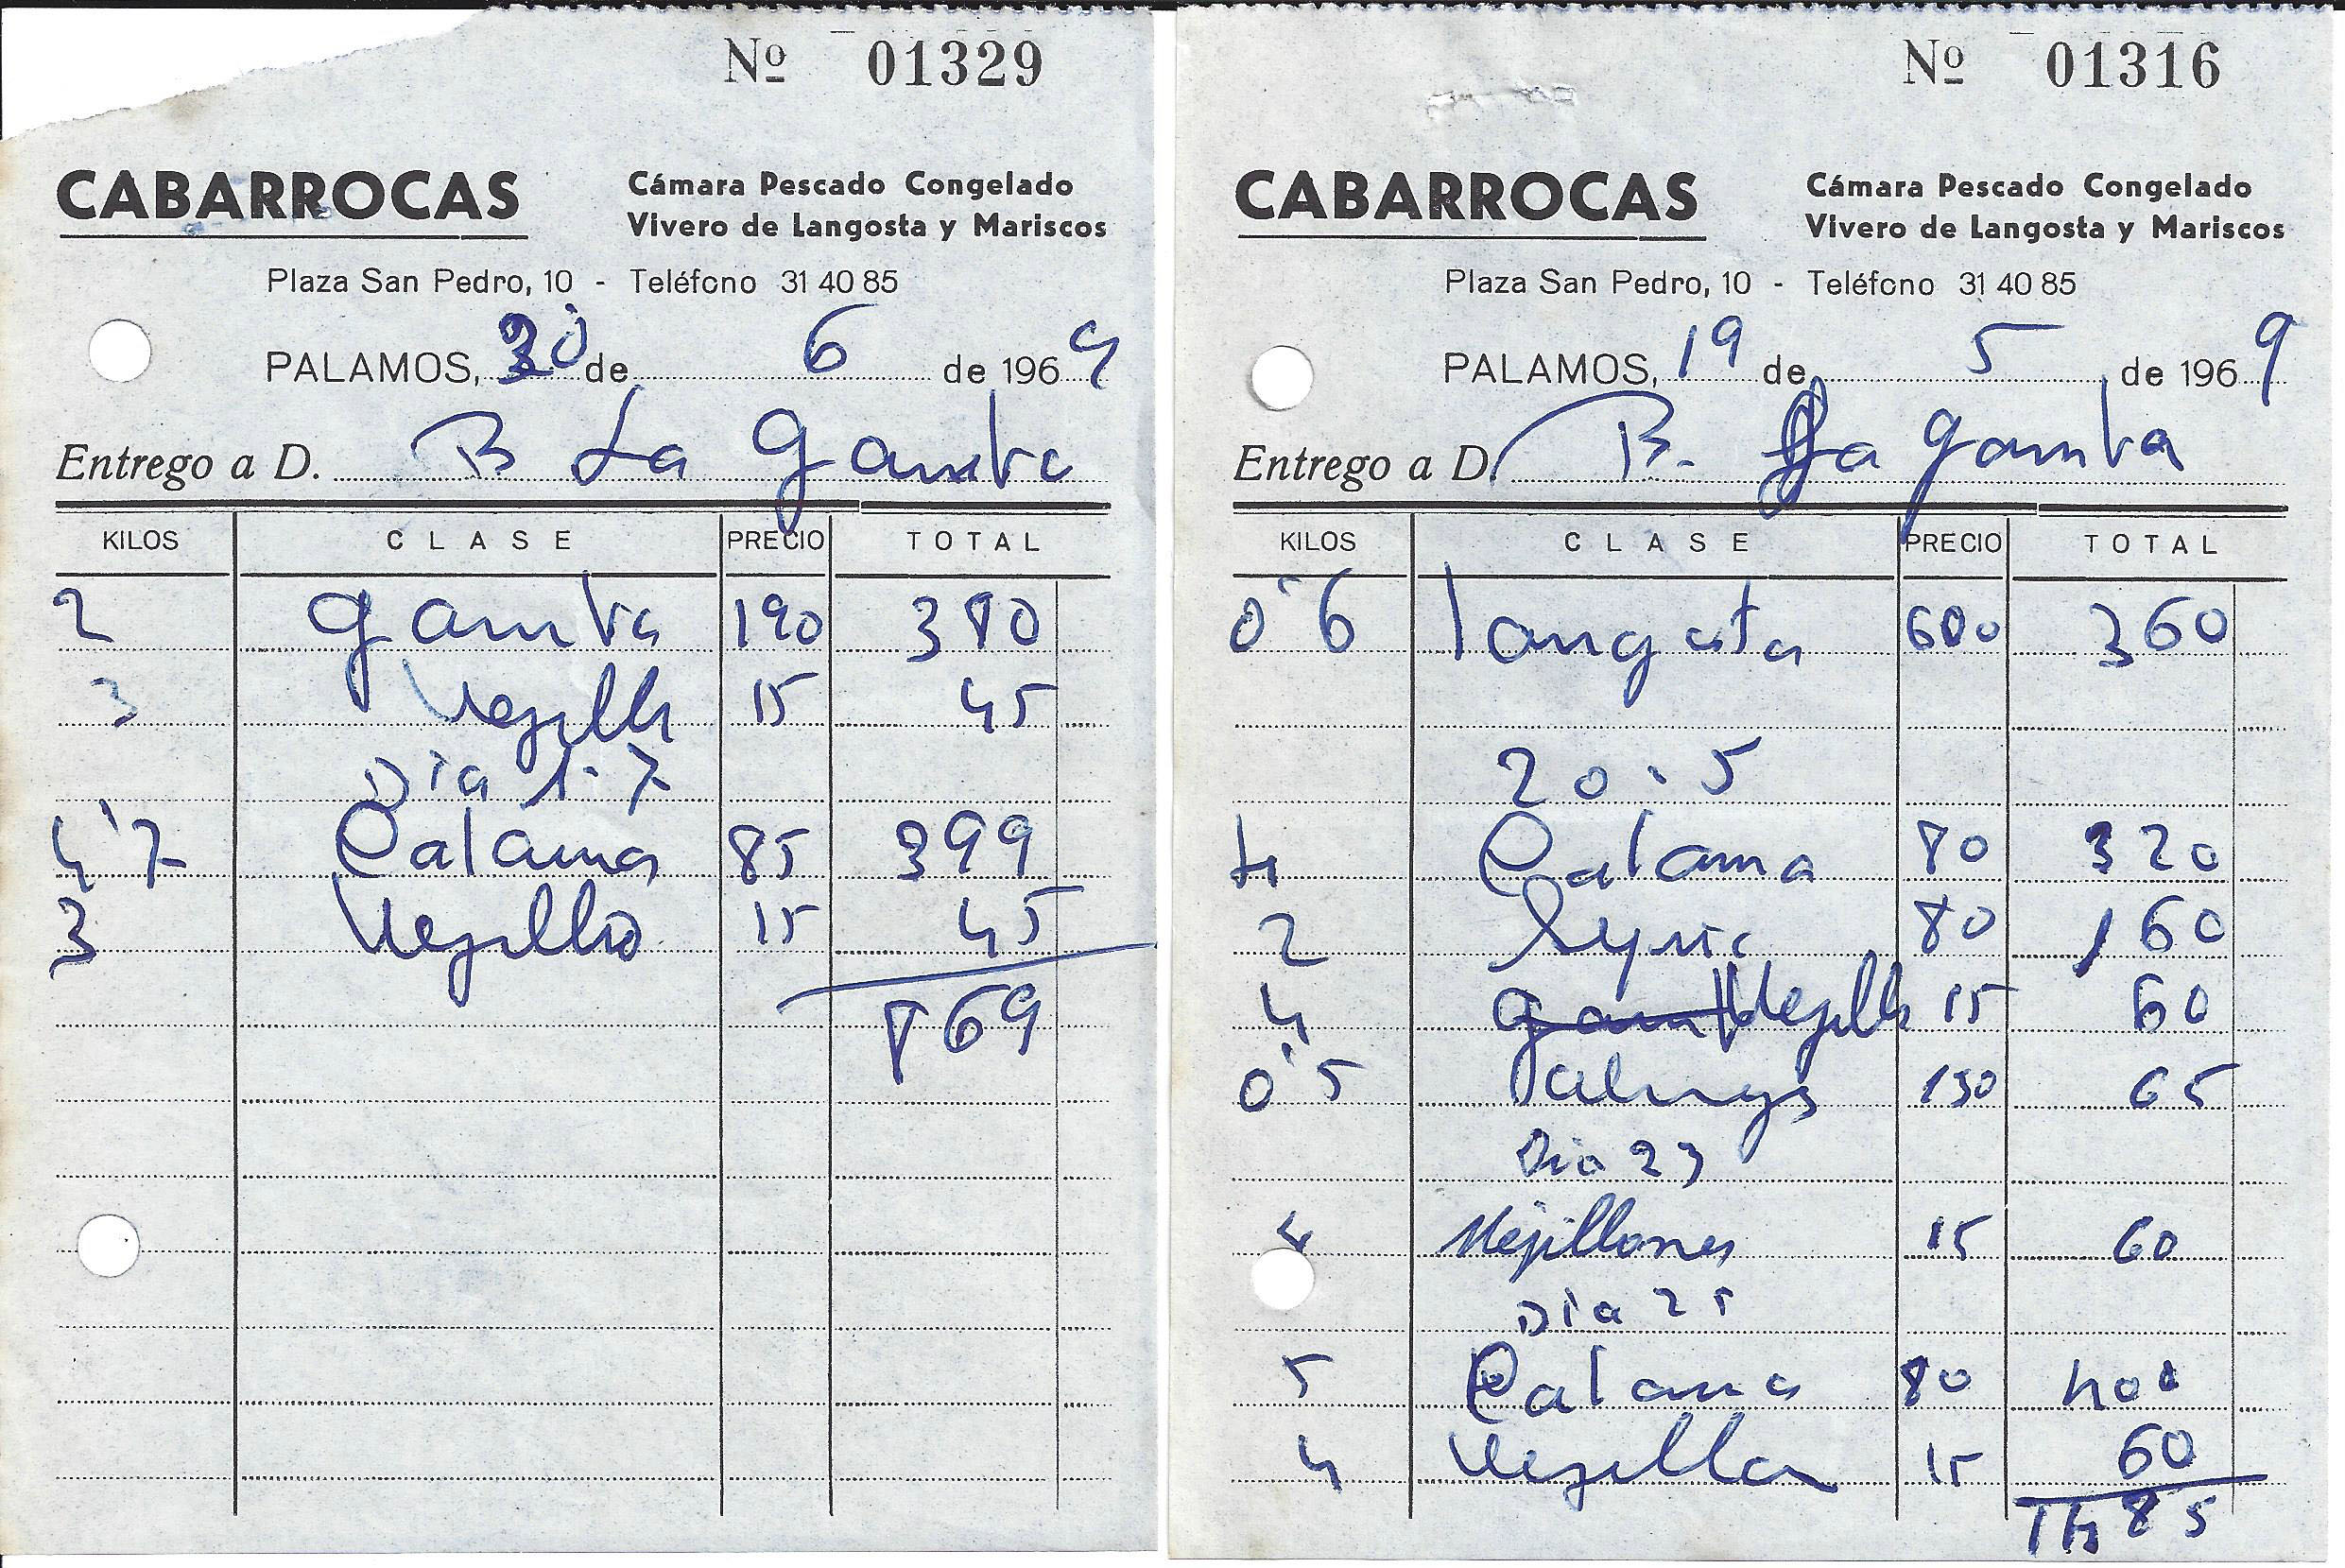 Nº 01329
CABARROCAS
Cámara Pescado Congelado
Vivero de Langosta y Mariscos
Plaza San Pedro, 10 - Teléfono 31 40 85
PALAMOS, 30 de 6 de 1969
Entrego a D. B La Gamba
KILOS CLASE PRECIO TOTAL
2 gamba 190 380
3 Mejills 15 45
Dia 1-7
4'7 Calama 85 399
3 Mejillo 15 45
869
Nº 01316
CABARROCAS
Cámara Pescado Congelado
Vivero de Langosta y Mariscos
Plaza San Pedro, 10 - Teléfono 31 40 85
PALAMOS, 19 de 5 de 1969
Entrego a D. B. La gamba
KILOS CLASE PRECIO TOTAL
0'6 langosta 600 360
20-5
4 Calama 80 320
2 80 160
4 Mejills 15 60
0'5 130 65
Dia 23
4 Mejillones 15 60
Dia 25
5 Calama 80 400
4 Mejilla 15 60
1485